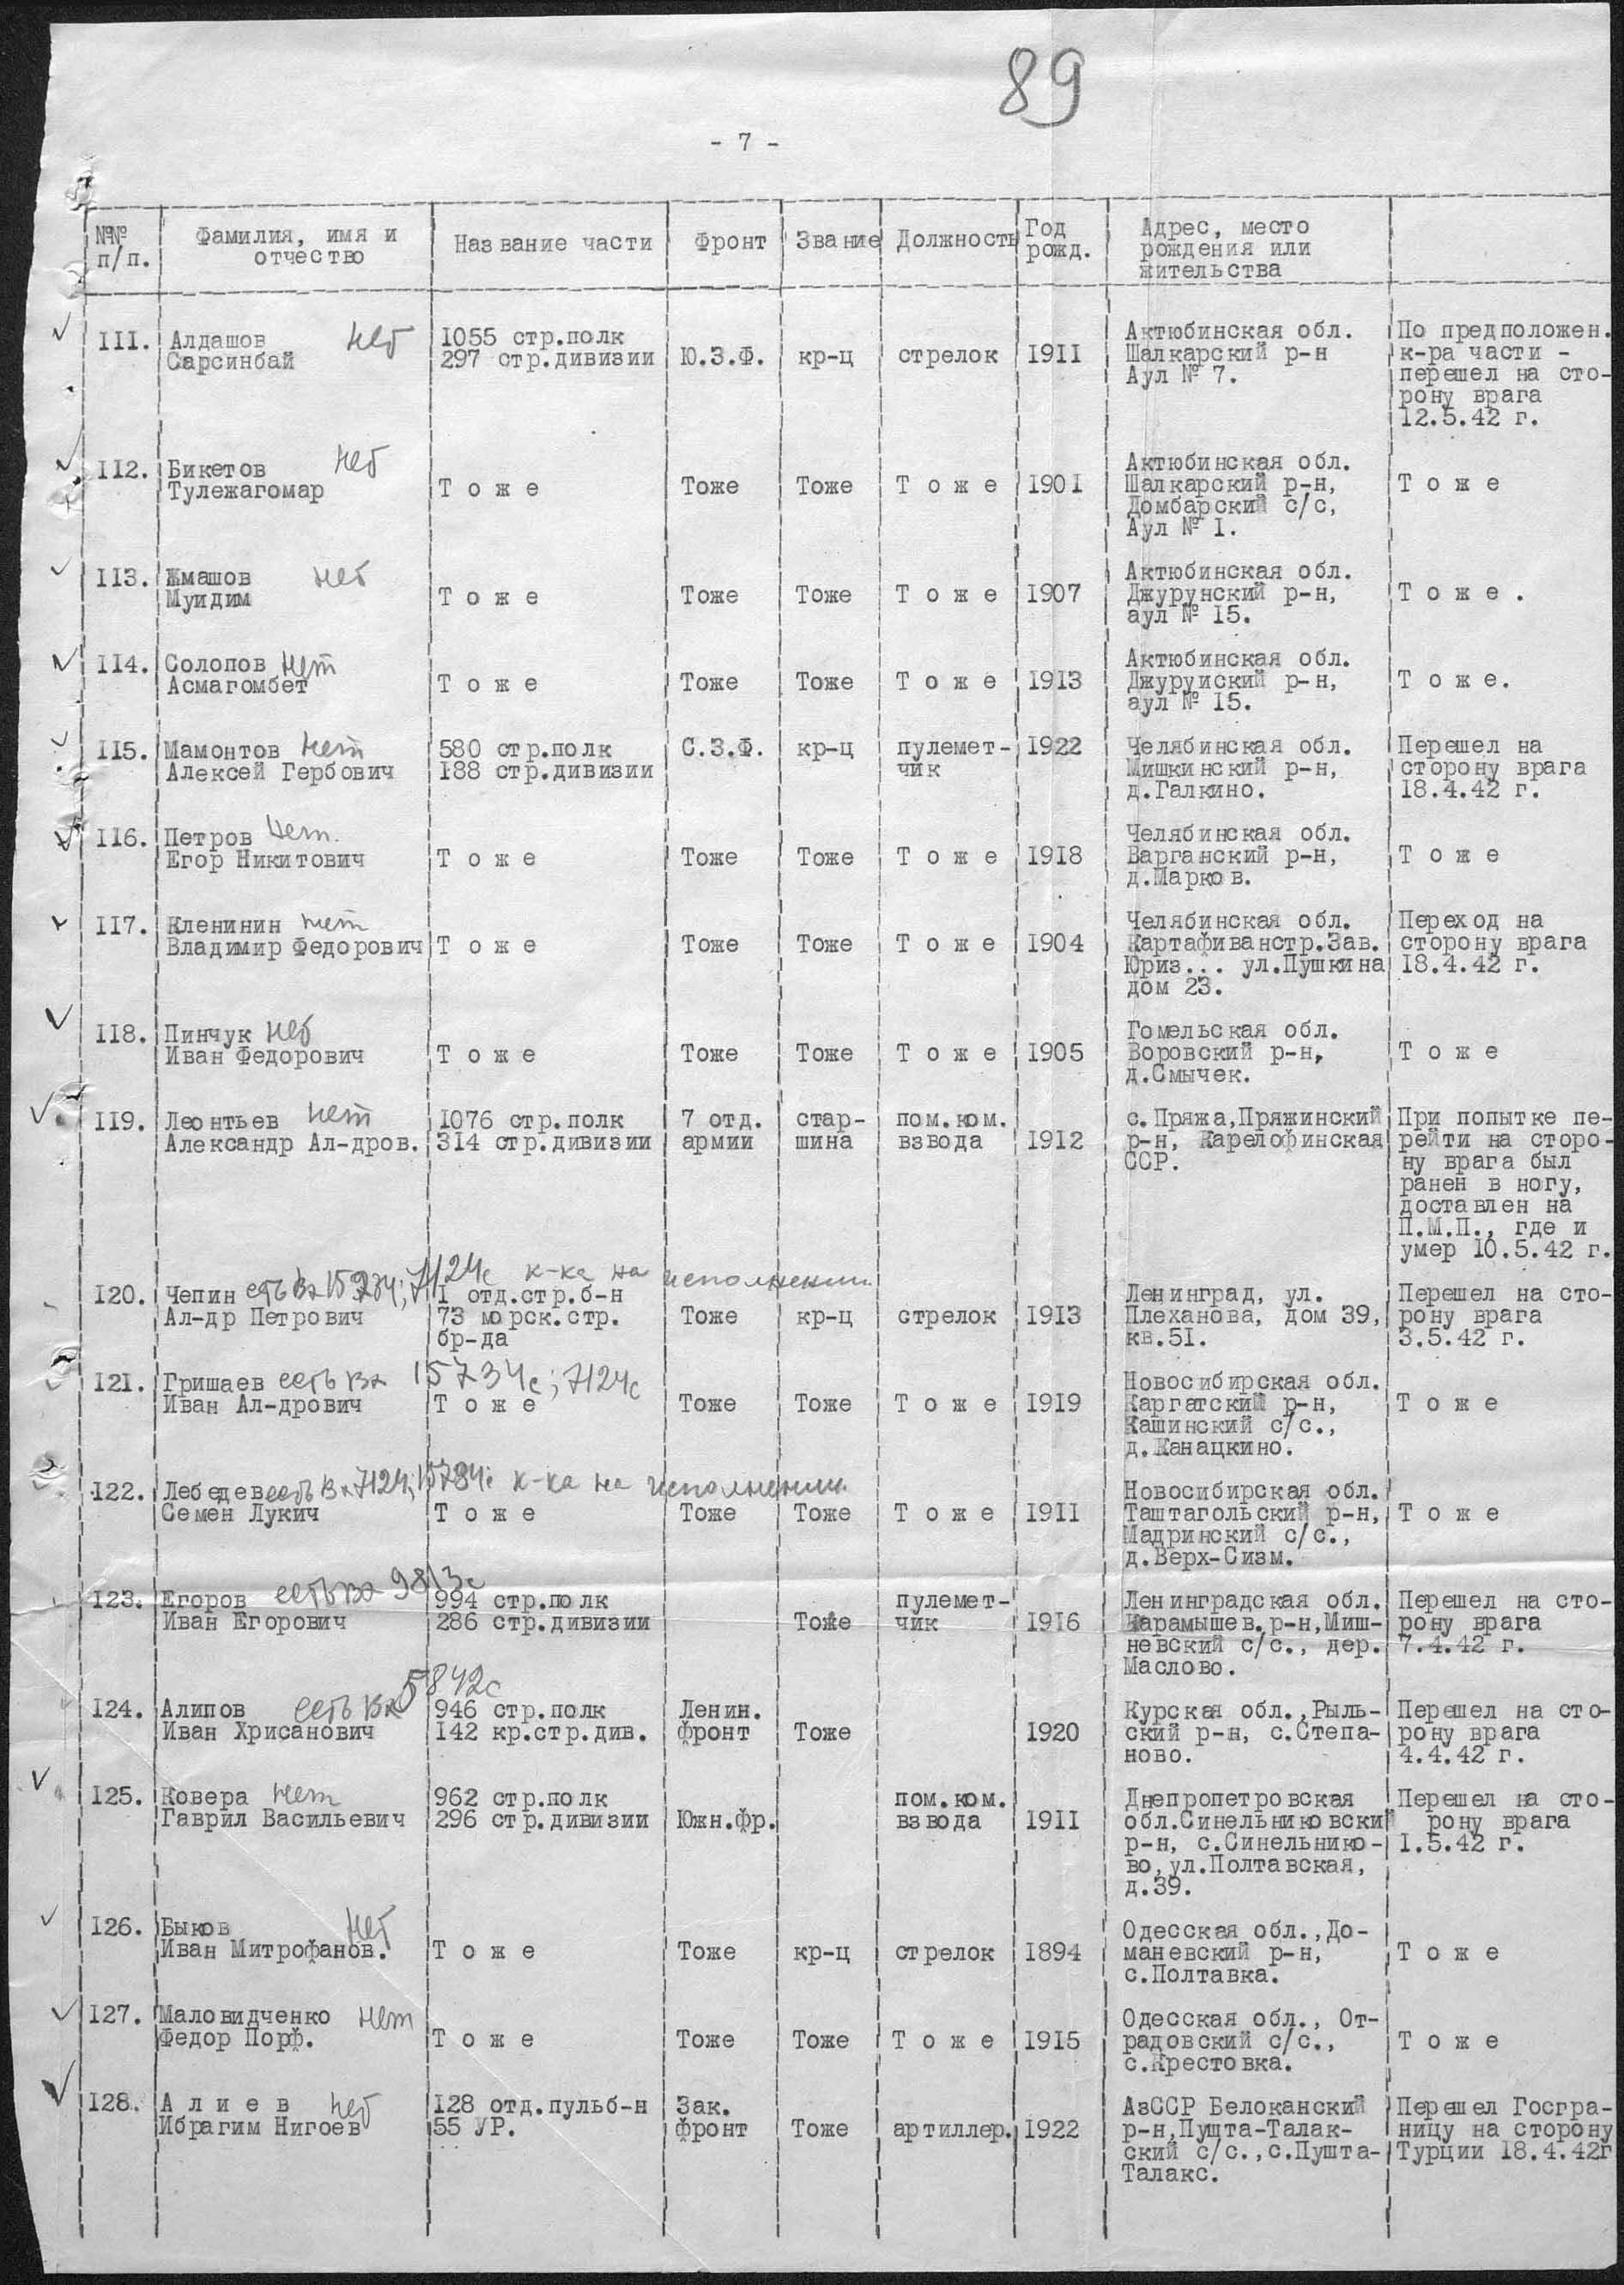 89
- 7 -
№№ п/п. Фамилия, имя и отчество Название части Фронт Звание Должность Год рожд. Адрес, место рождения или жительства
III. Алдашов нет 1055 стр.полк Актюбинская обл. По предположен.
Сарсинбай 297 стр.дивизии Ю.З.Ф. кр-ц стрелок 1911 Шалкарский р-н к-ра части -
Аул № 7. перешел на сто-
рону врага
12.5.42 г.
II2. Бикетов нет Актюбинская обл.
Тулежагомар Т о ж е Тоже Тоже Т о ж е 1901 Шалкарский р-н, Т о ж е
Домбарский с/с,
Аул № I.
II3. Жмашов нет Актюбинская обл.
Муидим Т о ж е Тоже Тоже Т о ж е 1907 Джурунский р-н, Т о ж е .
аул № 15.
II4. Солопов нет Актюбинская обл.
Асмагомбет Т о ж е Тоже Тоже Т о ж е 1913 Джуруиский р-н, Т о ж е.
аул № 15.
II5. Мамонтов нет 580 стр.полк С.З.Ф. кр-ц пулемет- 1922 Челябинская обл. Перешел на
Алексей Гербович 188 стр.дивизии чик Мишкинский р-н, сторону врага
д.Галкино. 18.4.42 г.
II6. Петров нет. Челябинская обл.
Егор Никитович Т о ж е Тоже Тоже Т о ж е 1918 Варганский р-н, Т о ж е
д.Марков.
II7. Кленинин нет Челябинская обл. Переход на
Владимир Федорович Т о ж е Тоже Тоже Т о ж е 1904 Картафиванстр.Зав. сторону врага
Юриз... ул.Пушкина 18.4.42 г.
дом 23.
II8. Пинчук нет Гомельская обл.
Иван Федорович Т о ж е Тоже Тоже Т о ж е 1905 Воровский р-н, Т о ж е
д.Смычек.
II9. Леонтьев нет 1076 стр.полк 7 отд. стар- пом.ком. с.Пряжа,Пряжинский При попытке пе-
Александр Ал-дров. 314 стр.дивизии армии шина взвода 1912 р-н, Карелофинская рейти на сторо-
ССР. ну врага был
ранен в ногу,
доставлен на
П.М.П., где и
умер 10.5.42 г.
есть Вх 7124с к-ка на исполнении
I20. Чепин I отд.стр.б-н Ленинград, ул. Перешел на сто-
Ал-др Петрович 73 морск.стр. Тоже кр-ц стрелок 1913 Плеханова, дом 39, рону врага
бр-да кв.51. 3.5.42 г.
I21. Гришаев есть Вх 15734с; 7124с Новосибирская обл.
Иван Ал-дрович Т о ж е Тоже Тоже Т о ж е 1919 Каргатский р-н, Т о ж е
Кашинский с/с.,
д.Канацкино.
I22. Лебедев есть Вх 7124; к-ка на исполнении Новосибирская обл.
Семен Лукич Т о ж е Тоже Тоже Т о ж е 1911 Таштагольский р-н, Т о ж е
Мадринский с/с.,
д.Верх-Сизм.
I23. Егоров есть Вх 9813с 994 стр.полк пулемет- Ленинградская обл. Перешел на сто-
Иван Егорович 286 стр.дивизии Тоже чик 1916 Карамышев.р-н,Миш- рону врага
невский с/с., дер. 7.4.42 г.
Маслово.
I24. Алипов есть Вх 5842с 946 стр.полк Ленин. Курская обл.,Рыль- Перешел на сто-
Иван Хрисанович 142 кр.стр.див. фронт Тоже 1920 ский р-н, с.Степа- рону врага
ново. 4.4.42 г.
I25. Ковера нет 962 стр.полк пом.ком. Днепропетровская Перешел на сто-
Гаврил Васильевич 296 стр.дивизии Южн.фр. взвода 1911 обл.Синельниковский рону врага
р-н, с.Синельнико- 1.5.42 г.
во,ул.Полтавская,
д.39.
I26. Быков нет Одесская обл.,До-
Иван Митрофанов. Т о ж е Тоже кр-ц стрелок 1894 маневский р-н, Т о ж е
с.Полтавка.
I27. Маловидченко нет Одесская обл., От-
Федор Порф. Т о ж е Тоже Тоже Т о ж е 1915 радовский с/с., Т о ж е
с.Крестовка.
I28. А л и е в нет 128 отд.пульб-н Зак. АзССР Белоканский Перешел Госгра-
Ибрагим Нигоев 55 УР. фронт Тоже артиллер. 1922 р-н,Пушта-Талак- ницу на сторону
ский с/с.,с.Пушта- Турции 18.4.42г
Талакс.